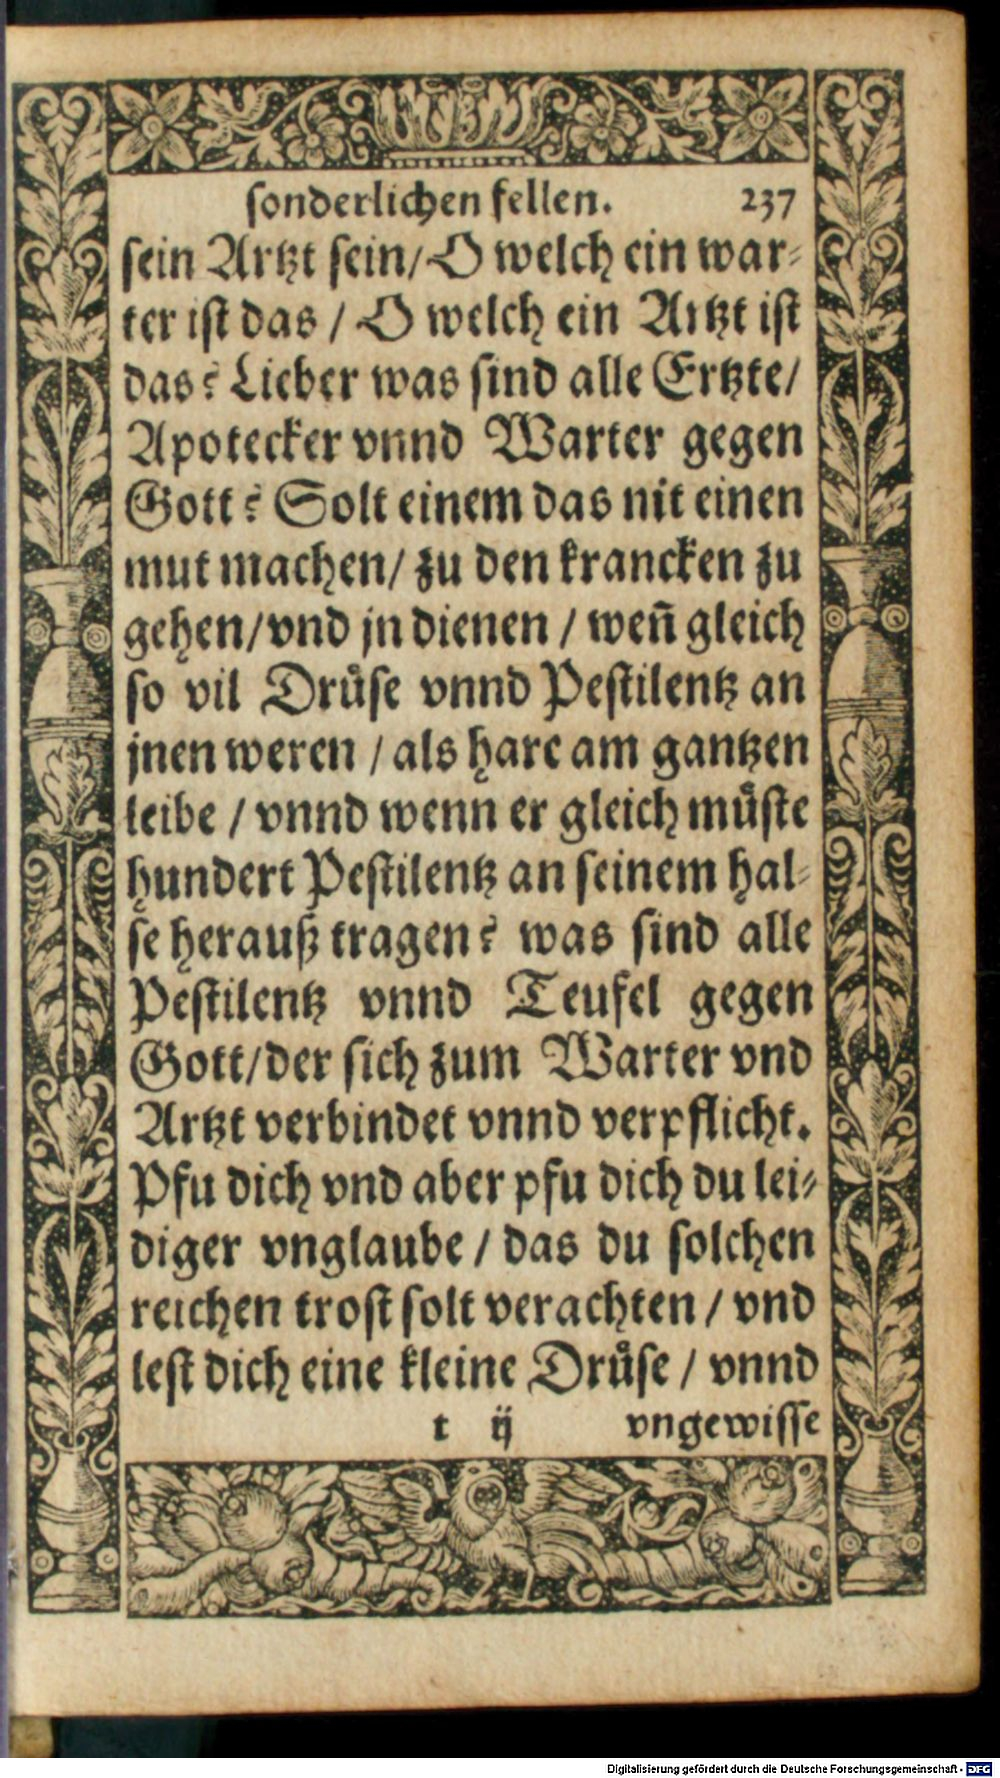 sonderlichen fellen. 237
sein Artzt sein/ O welch ein war-
ter ist das / O welch ein Artzt ist
das? Lieber was sind alle Ertzte/
Apotecker vnnd Warter gegen
Gott? Solt einem das nit einen
mut machen/ zu den krancken zu
gehen/vnd jn dienen / weñ gleich
so vil Druͤse vnnd Pestilentz an
jnen weren / als hare am gantzen
leibe / vnnd wenn er gleich muͤste
hundert Pestilentz an seinem hal-
se herauß tragen? was sind alle
Pestilentz vnnd Teufel gegen
Gott/der sich zum Warter vnd
Artzt verbindet vnnd verpflicht.
Pfu dich vnd aber pfu dich du lei-
diger vnglaube / das du solchen
reichen trost solt verachten / vnd
lest dich eine kleine Druͤse / vnnd
t ij vngewisse
Digitalisierung gefördert durch die Deutsche Forschungsgemeinschaft - DFG